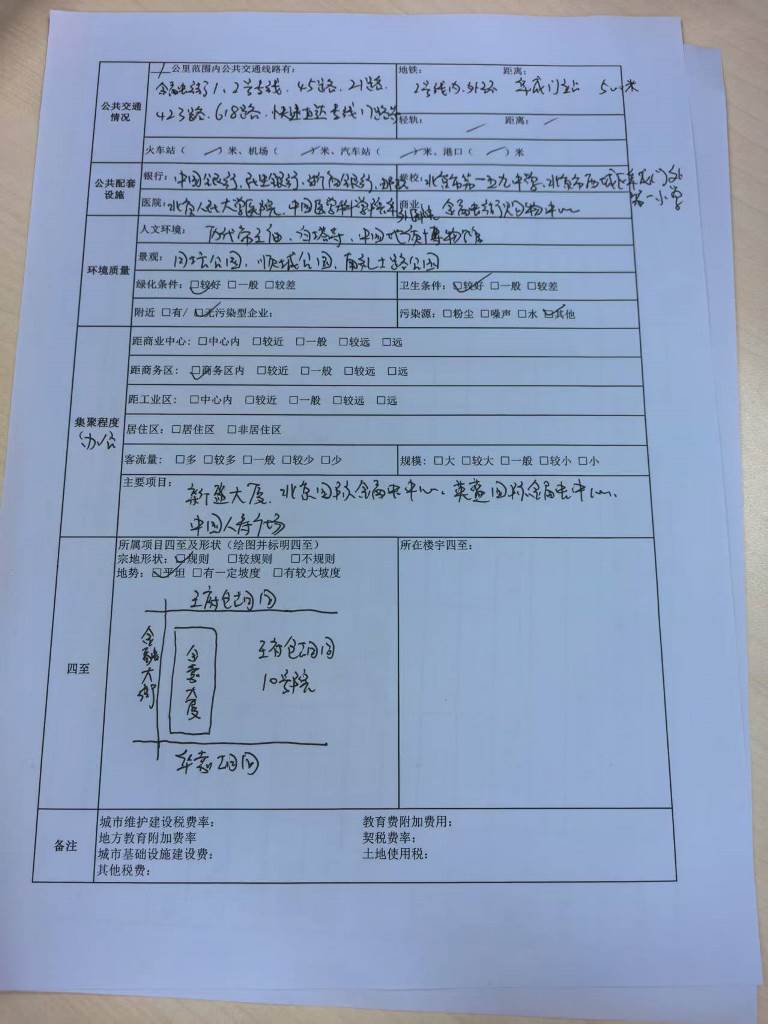 1公里范围内公共交通线路有:
地铁: 距离:
公共交通情况
金融街1、2号专线、45路、21路、
2号线内、外环 阜成门站 500米
423路、618路、快速直达专线
轻轨: / 距离: /
火车站(/)米、机场(/)米、汽车站(/)米、港口(/)米
公共配套设施
银行:中国银行、民生银行、浙商银行、
学校:北京市第一五九中学、北京市西城区阜成门外第一小学
医院:北京人民大学医院、中国医学科学院阜外医院
商业:金融街购物中心
环境质量
人文环境:历代帝王庙、白塔寺、中国地质博物馆
景观:月坛公园、顺城公园、南礼士路公园
绿化条件:☑较好 □一般 □较差
卫生条件:☑较好 □一般 □较差
附近 □有/ ☑无污染型企业:
污染源:□粉尘 □噪声 □水 ☑其他
集聚程度
(办公
距商业中心:□中心内 □较近 □一般 □较远 □远
距商务区:☑商务区内 □较近 □一般 □较远 □远
距工业区:□中心内 □较近 □一般 □较远 □远
居住区:□居住区 □非居住区
客流量:□多 □较多 □一般 □较少 □少
规模:□大 □较大 □一般 □较小 □小
主要项目:
新盛大厦、北京国际金融中心、英蓝国际金融中心、
中国人寿广场
四至
所属项目四至及形状(绘图并标明四至)
所在楼宇四至:
宗地形状:☑规则 □较规则 □不规则
地势:☑平坦 □有一定坡度 □有较大坡度
王府仓胡同
金融大街
大厦
王府仓胡同
10号院
华嘉胡同
备注
城市维护建设税费率:
教育费附加费用:
地方教育附加费率
契税费率:
城市基础设施建设费:
土地使用税:
其他税费: